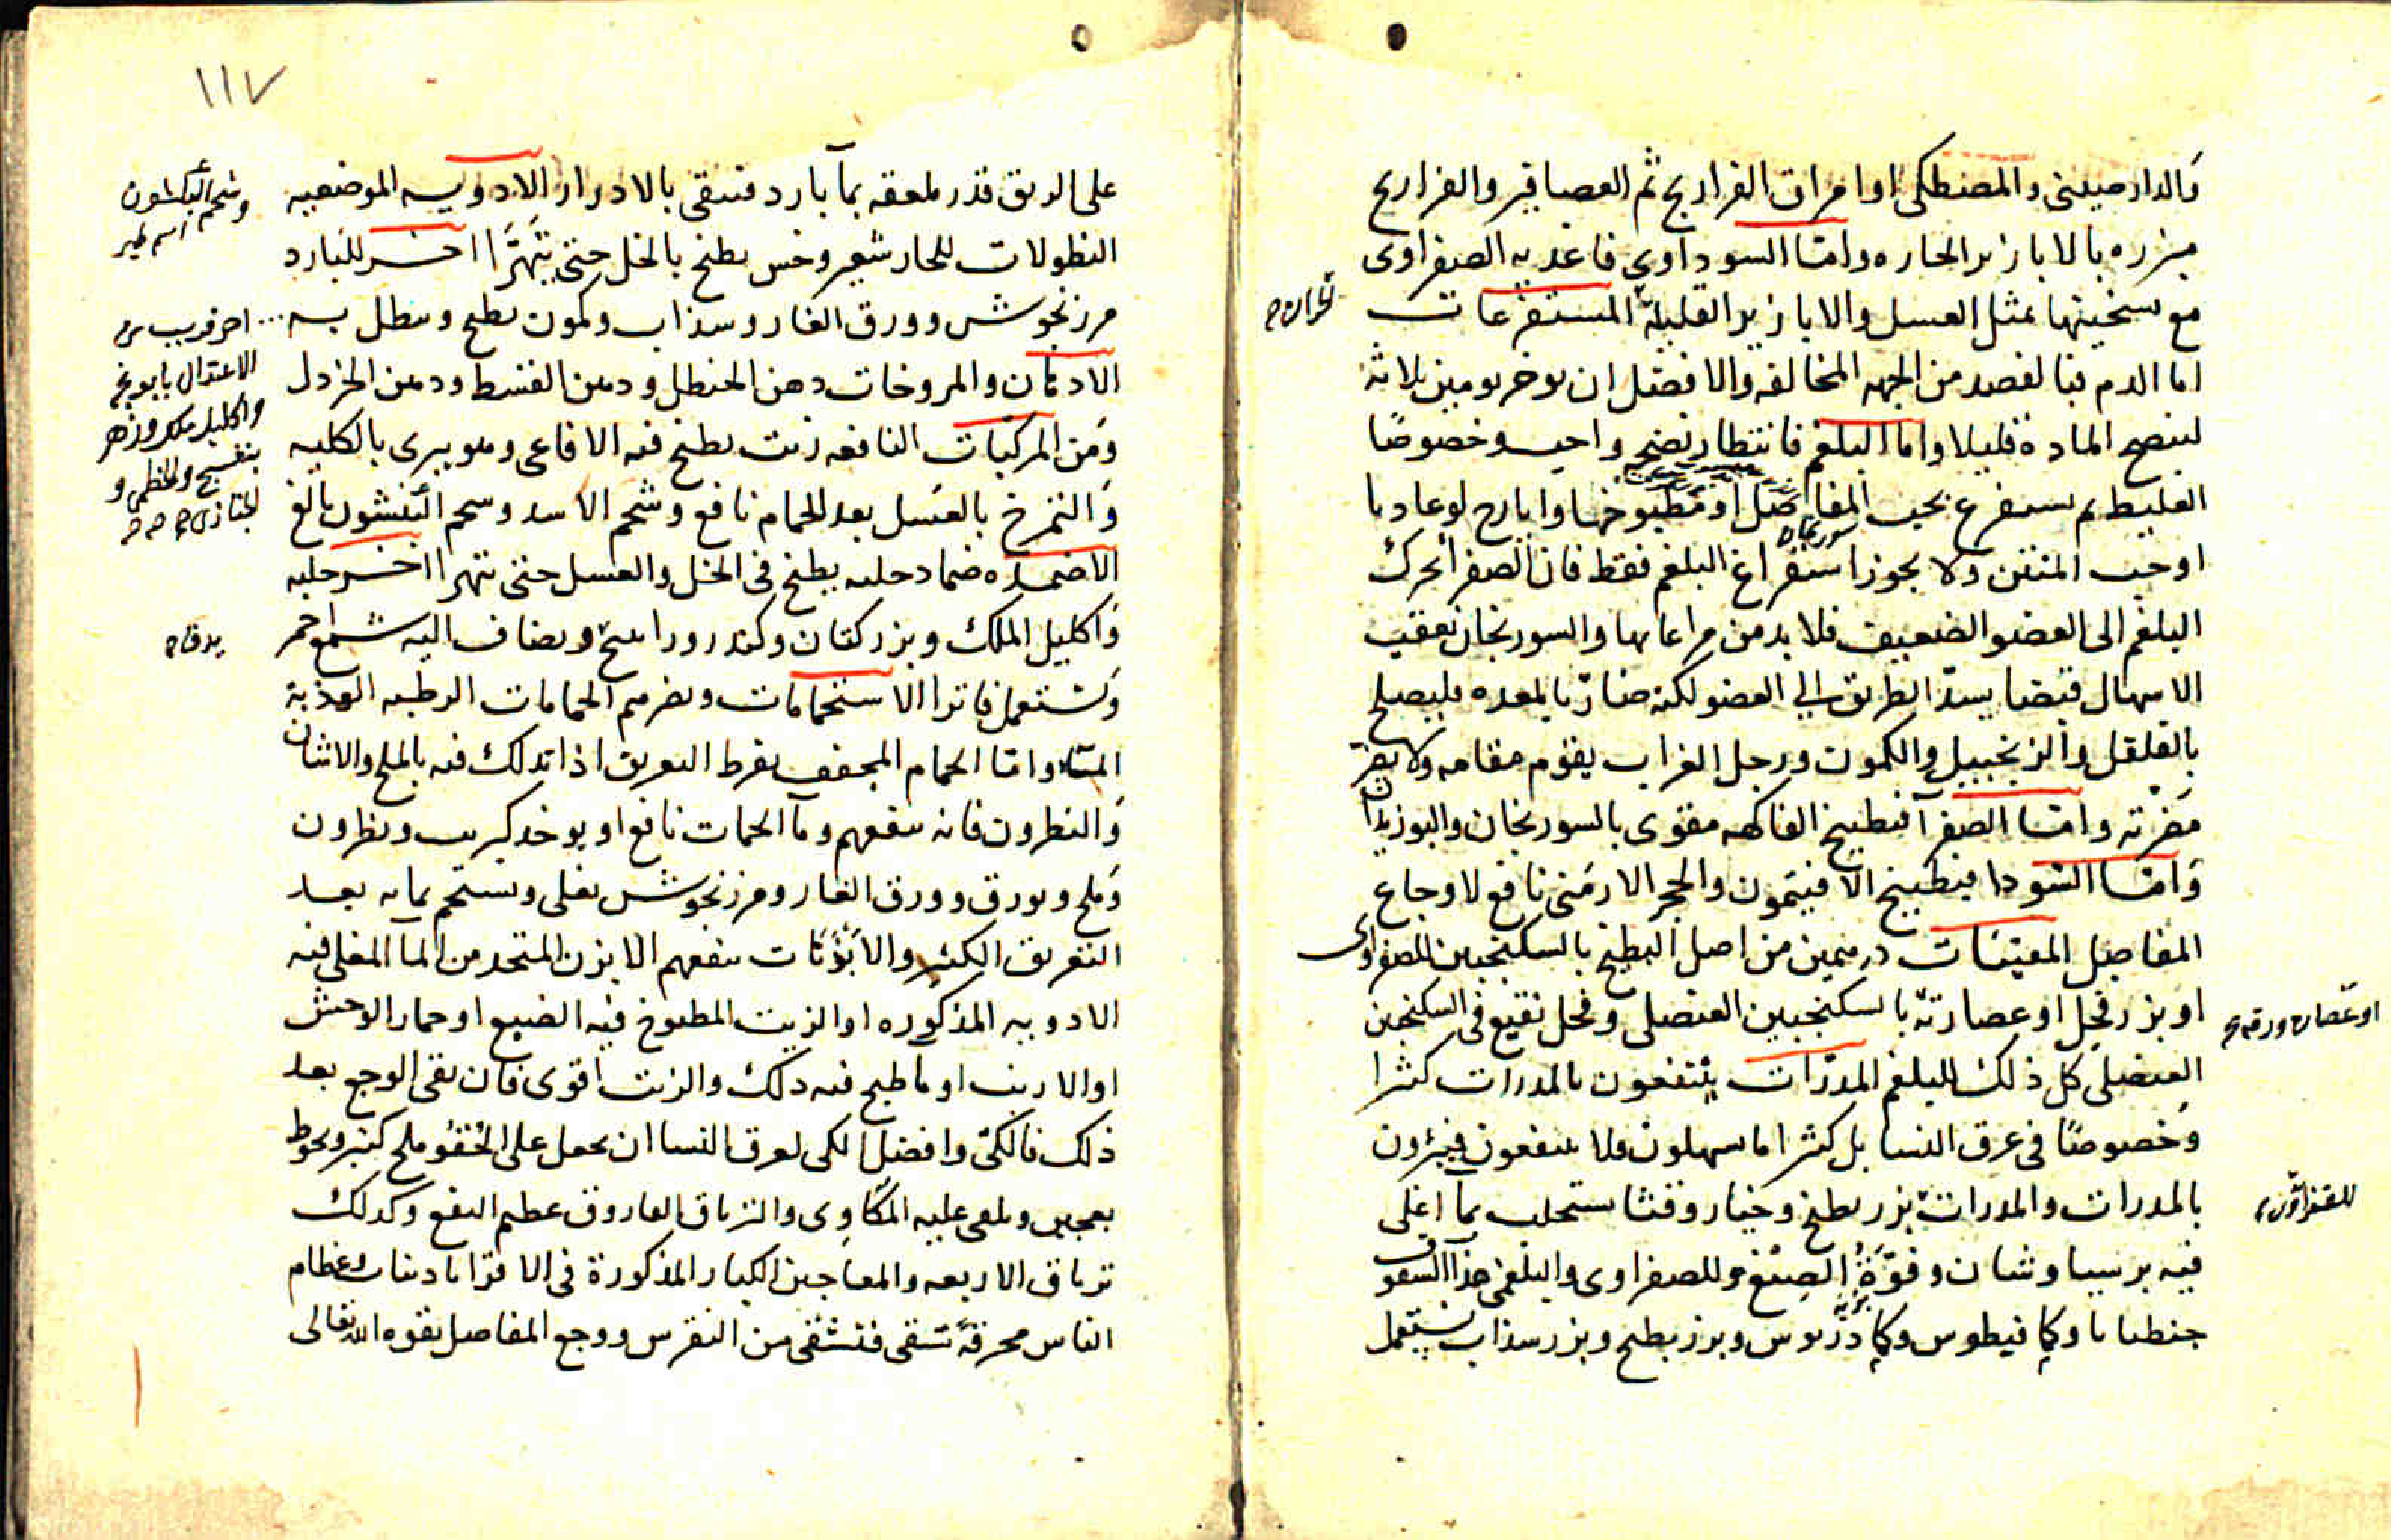 والدارصيني والمصطكى او امراق الفراريج ثم العصافير والفراريج
مبزره بالابازير الحاره واما السوداوي فاغذيه الصفراوى
مع تسخينها بمثل العسل والابازير القليلة المستفرغات
اما الدم فبالفصد من الجهه المخالفه والافضل ان يوخر يومين ثلاثه
لينضج المادة قليلا واما البلغم فانتظار نضجه واجب وخصوصا
الغليظ ثم يستفرغ بحب المفاصل او مطبوخها وايارج لوغاديا
سورنجان
او حب المنتن ولا يجوز استفراغ البلغم فقط فان الصفرا تحرك
البلغم الى العضو الضعيف فلا بد من مراعاتها والسورنجان يعقب
الاسهال قبضا يسد الطريق الى العضو لكنه ضار بالمعده فليصلح
بالفلفل والزنجبيل والكمون ورجل الغراب يقوم مقامه ولا يضر
مضرته واما الصفرآ فبطبيخ الفاكهه مقوى بالسورنجان والبوزيدان
واما السودا فبطبيخ الافيتمون والحجر الارمنى نافع لاوجاع
المفاصل المقيئات درهمين من اصل البطيخ بالسكنجبين للصفراوى
او بزر فجل او عصارته بالسكنجبين العنصلى وفجل نقيع فى السكنجبين
او عصاره ورقه
العنصلى كل ذلك للبلغم المدرات ينتفعون بالمدرات كثيرا
وخصوصا فى عرق النسا بل كثيرا ما يسهلون فلا ينتفعون فيبرءون
بالمدرات والمدرات بزر بطيخ وخيار وقثا يستحلب بمآ اغلى
للصفراوى
فيه برسياوشان وفوة الصبغ وللصفراوى والبلغمى هذا السفوف
جنطيانا وكمافيطوس وكمادريوس وبزر بطيخ وبزر سذاب يستعمل
١١٧
على الريق قدر ملعقه بمآ بارد فتنقى بالادرار الادويه الموضعيه
وشحم
اسم طير
النطولات للحار شعير وخس يطبخ بالخل حتى يتهرا اخر للبارد
مرزنجوش وورق الغار وسذاب وكمون يطبخ وينطل به
اخر قريب من
الاعتدال بابونج
واكليل ملك وزهر
بنفسج والخطمى و
الادهان والمروخات دهن الحنظل ودهن القسط ودهن الخردل
ومن المركبات النافعه زيت يطبخ فيه الافاعى وهو يبرى بالكليه
والتمرخ بالعسل بعد الحمام نافع وشحم الاسد وشحم بالغ
الاضمده ضماد حلبه يطبخ فى الخل والعسل حتى تتهرا اخر حلبه
واكليل الملك وبزر كتان وكندر وراتينج ويضاف اليه شمع احمر
ويستعمل فاترا الاستحمامات ويضرهم الحمامات الرطبه العذبة
الماء واما الحمام المجفف بفرط التعريق اذا تدلك فيه بالملح والاشنان
والنطرون فانه ينفعهم ومآ الحمات نافع او يوخذ كبريت ونطرون
وملح وبورق وورق الغار ومرزنجوش يغلى ويستحم بمائه بعد
التعريق الكثير والابزنات ينفعهم الابزن المتخذ من المآ المغلى فيه
الادويه المذكوره او الزيت المطبوخ فيه الضبع او حمار الوحش
او الارنب او مآ طبخ فيه ذلك والزيت اقوى فان بقى الوجع بعد
ذلك فالكى وافضل الكى لعرق النسا ان يحمل على الحقو ملح كثير ويحوط
بعجين ويلقى عليه المكاوى والترياق الفاروق عظيم النفع وكذلك
ترياق الاربعه والمعاجين الكبار المذكورة فى الاقراباذينات وعظام
الناس محرقة تسقى فتشفى من النقرس ووجع المفاصل بقوه الله تعالى